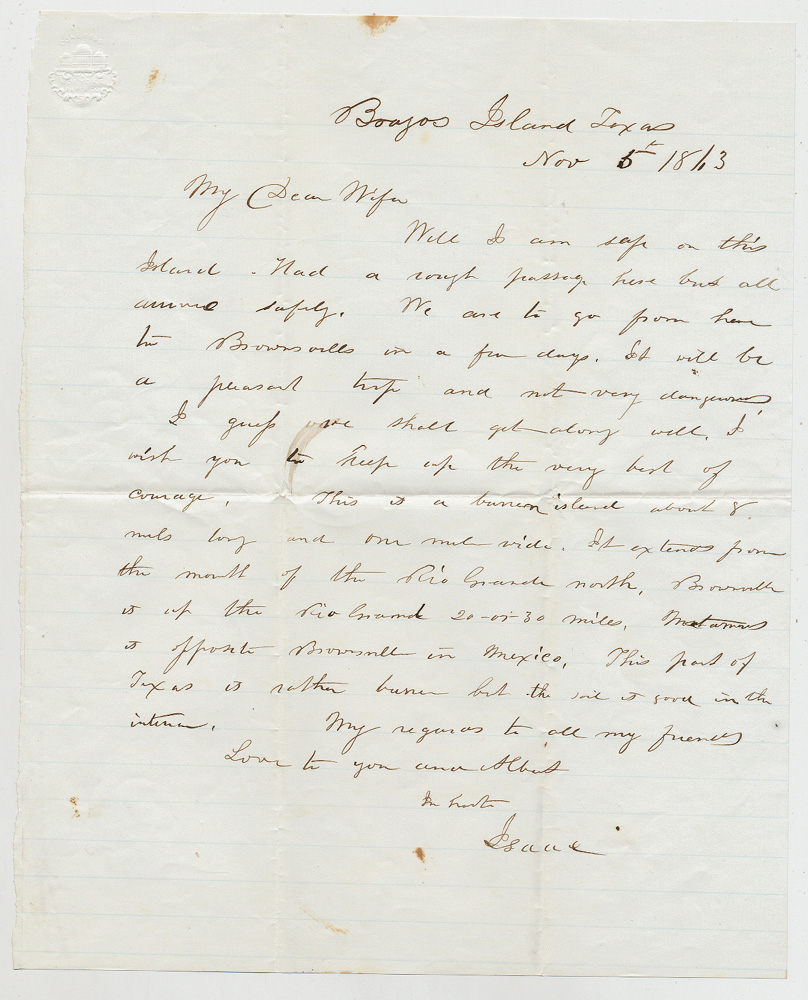 Brazos Island Texas
Nov 5th 1863
My Dear Wife
Well I am safe on this
Island. Had a rough passage here but all
arrived safely. We are to go from here
to Brownsville in a few days. It will be
a pleasant trip and not very dangerous
I guess we shall get along well. I
wish you to keep up the very best of
courage. This is a barren island about 8
mils long and one mile wide. It extends from
the mouth of the Rio Grande north. Brownsville
is up the Rio Grande 20-or-30 miles. Matamoras
is opposite Brownsville in Mexico. This part of
Texas is rather barren but the soil is good in the
interior. My regards to all my friends
Love to you and Albert
In haste
Isaac